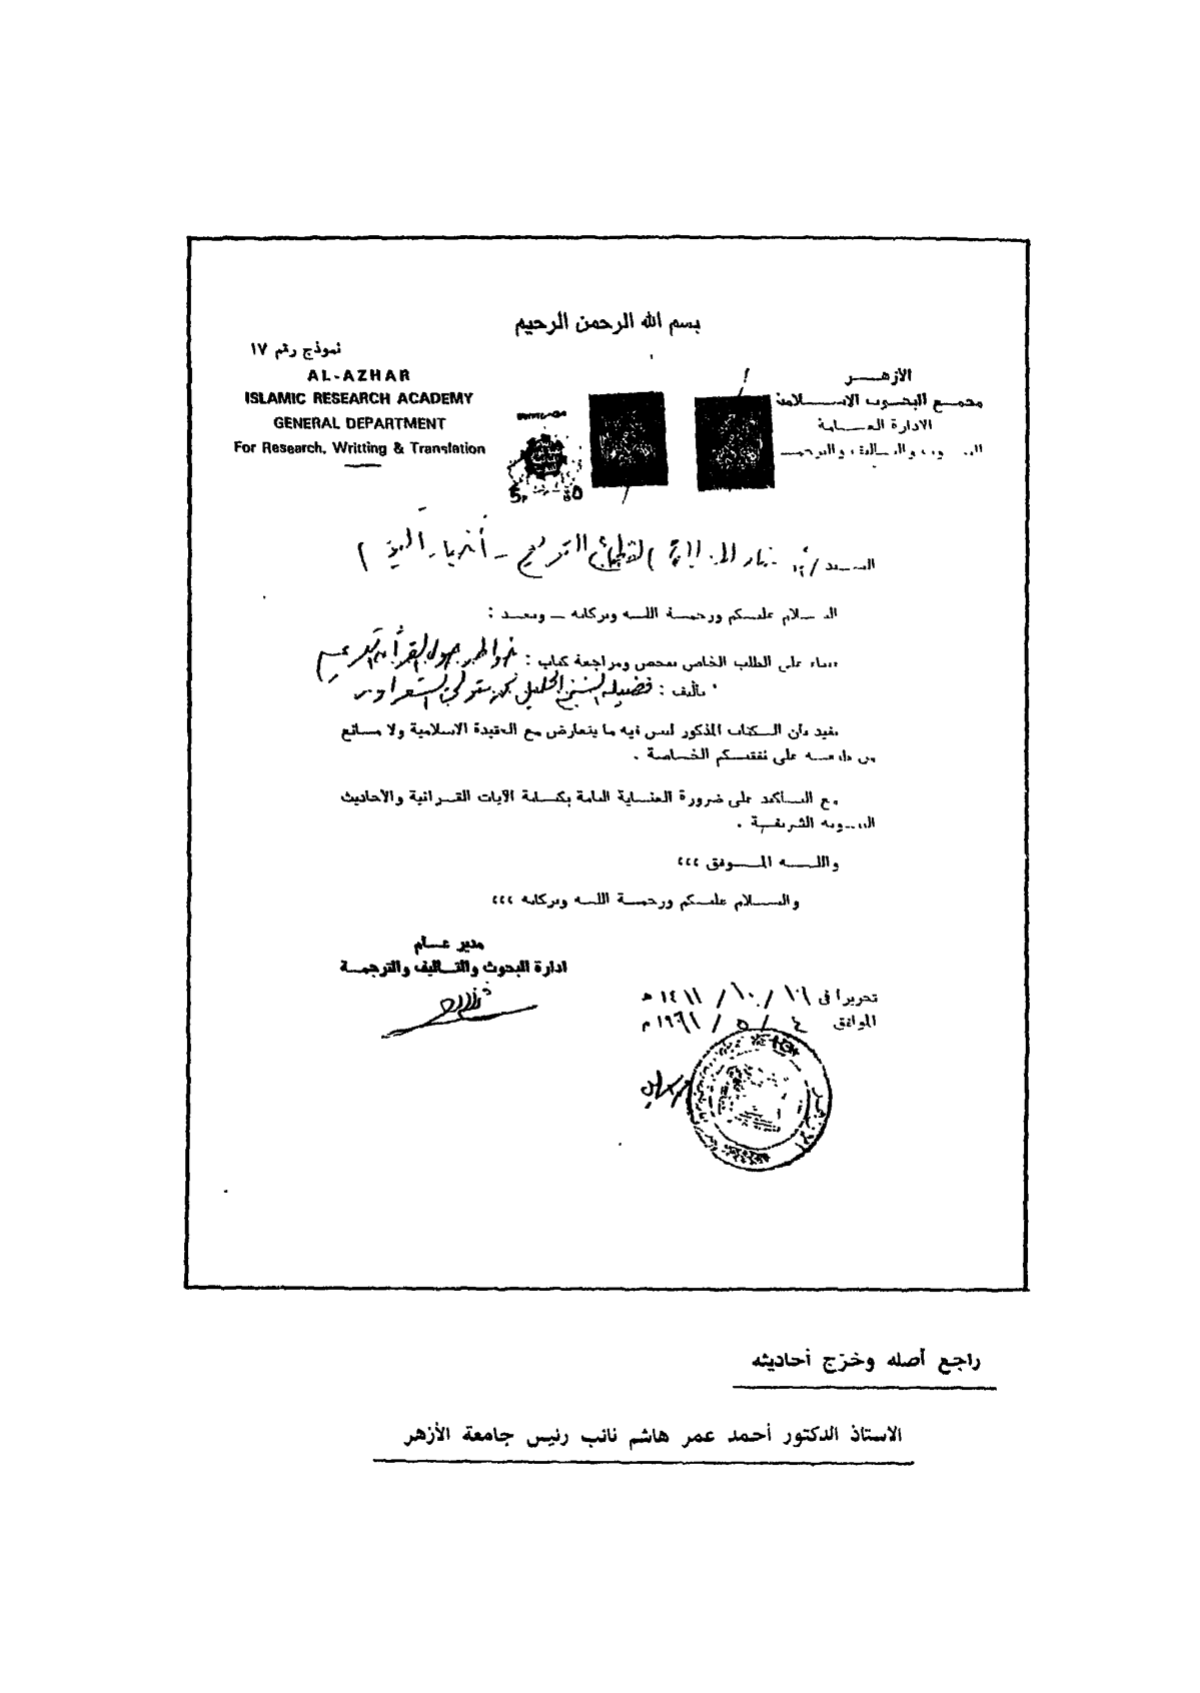 بسم الله الرحمن الرحيم
نموذج رقم ١٧
AL-AZHAR
ISLAMIC RESEARCH ACADEMY
GENERAL DEPARTMENT
For Research, Writting & Translation
الأزهـــر
مجمـــع البحـــوث الاســـلامية
الادارة العـــامة
السـلام عليـكم ورحمـة اللـه وبركاته ــ وبعـد :
بناء على الطلب الخاص بفحص ومراجعة كتاب : خواطر حول القرآن الكريم
تأليف : فضيلة الشيخ الجليل محمد متولي الشعراوي
نفيد بأن الـكتاب المذكور ليس فيه ما يتعارض مع العقيدة الاسلامية ولا مـانع
من طبعـه على نفقتـكم الخـاصة .
مع التـأكيد على ضرورة العنـاية التامة بكتـابة الآيات القـرآنية والأحاديث
النبـوية الشريفـة .
واللـــه المـــوفق ،،،
والسـلام عليـكم ورحمـة اللـه وبركاته ،،،
مدير عـام
ادارة البحوث والتـأليف والترجمـة
تحريرا فى / ١٠ / ١٤١١ هـ
الموافق ٤ / ٥ / م
راجع أصله وخرّج أحاديثه
الاستاذ الدكتور أحمد عمر هاشم نائب رئيس جامعة الأزهر